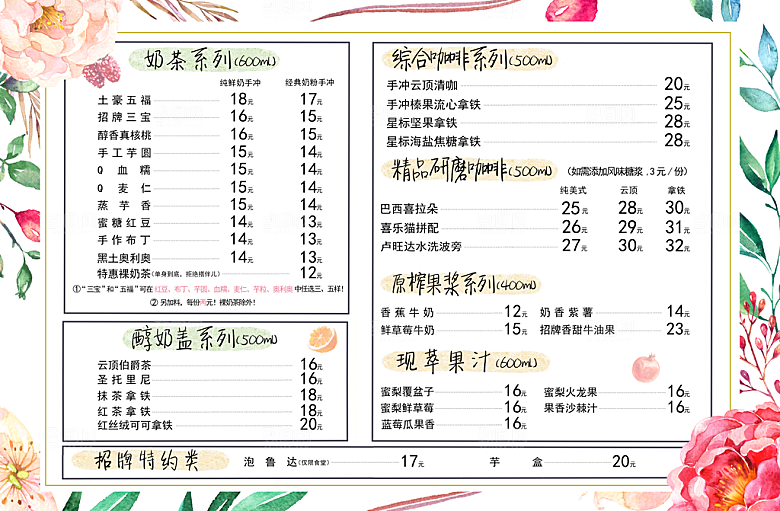 奶茶系列(600ml)
纯鲜奶手冲 经典奶粉手冲
土豪五福 18元 17元
招牌三宝 16元 15元
醇香真核桃 16元 15元
手工芋圆 15元 14元
Q血糯 15元 14元
Q麦仁 15元 14元
蒸芋香 15元 14元
蜜糖红豆 14元 13元
手作布丁 14元 13元
黑土奥利奥 14元 13元
特惠裸奶茶(单身到底，拒绝搭伴儿) 12元
①“三宝”和“五福”可在 红豆、布丁、芋圆、血糯、麦仁、芋粒、奥利奥 中任选三、五样!
② 另加料，每份 元! 裸奶茶除外!
醇奶盖系列(500ml)
云顶伯爵茶 16元
圣托里尼 16元
抹茶拿铁 18元
红茶拿铁 18元
红丝绒可可拿铁 20元
综合咖啡系列(500ml)
手冲云顶清咖 20元
手冲榛果流心拿铁 25元
星标坚果拿铁 28元
星标海盐焦糖拿铁 28元
精品研磨咖啡(500ml) (如需添加风味糖浆，3元/份)
纯美式 云顶 拿铁
巴西喜拉朵 25元 28元 30元
喜乐猫拼配 26元 29元 31元
卢旺达水洗波旁 27元 30元 32元
原榨果浆系列(400ml)
香蕉牛奶 12元 奶香紫薯 14元
鲜草莓牛奶 15元 招牌香甜牛油果 23元
现萃果汁(600ml)
蜜梨覆盆子 16元 蜜梨火龙果 16元
蜜梨鲜草莓 16元 果香沙棘汁 16元
蓝莓瓜果香 16元
招牌特约类 泡鲁达(仅限食堂) 17元 芋盒 20元